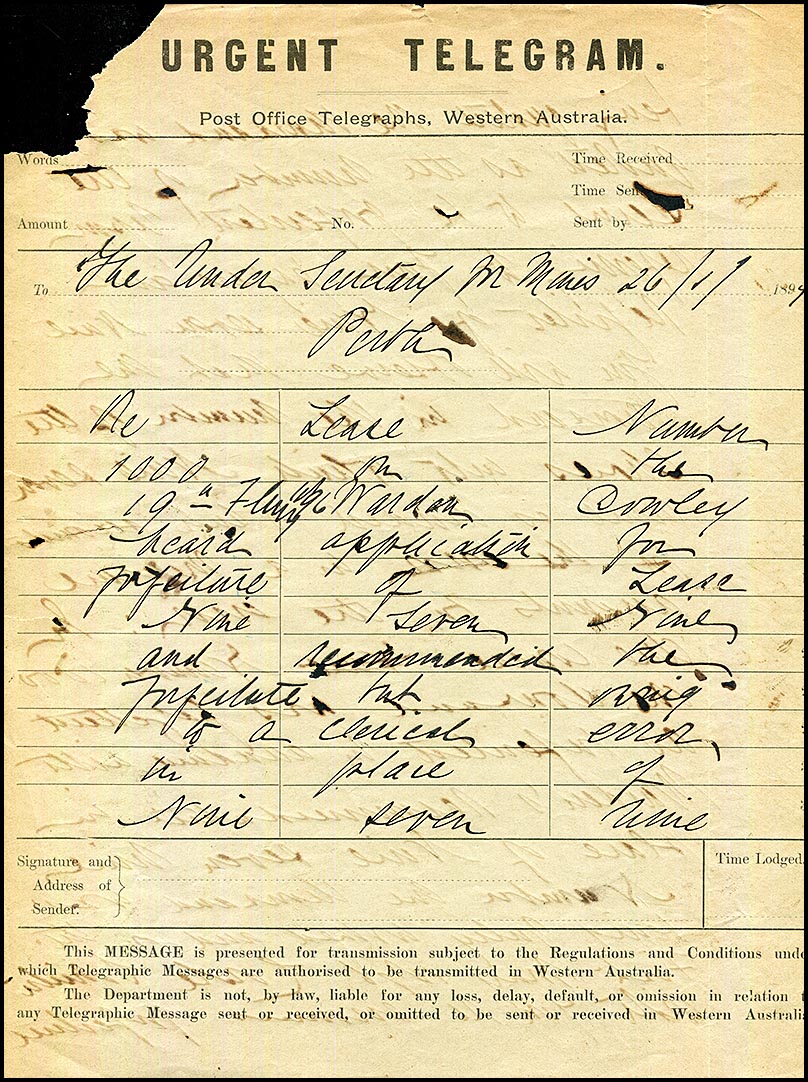 URGENT TELEGRAM.
Post Office Telegraphs, Western Australia.
Words
Time Received
Time Sent
Amount No. Sent by
To The Under Secretary for Mines 26/1/ 1897
Perth
Re Lease Number
1000 on the
19th Warden Cowley
heard application for
forfeiture of Lease
Nine Seven Nine
and recommended the
forfeiture but owing
to a clerical error
in place of
Nine seven nine
Signature and
Address of
Sender.
Time Lodged.
This MESSAGE is presented for transmission subject to the Regulations and Conditions unde
which Telegraphic Messages are authorised to be transmitted in Western Australia.
The Department is not, by law, liable for any loss, delay, default, or omission in relation
any Telegraphic Message sent or received, or omitted to be sent or received in Western Australia